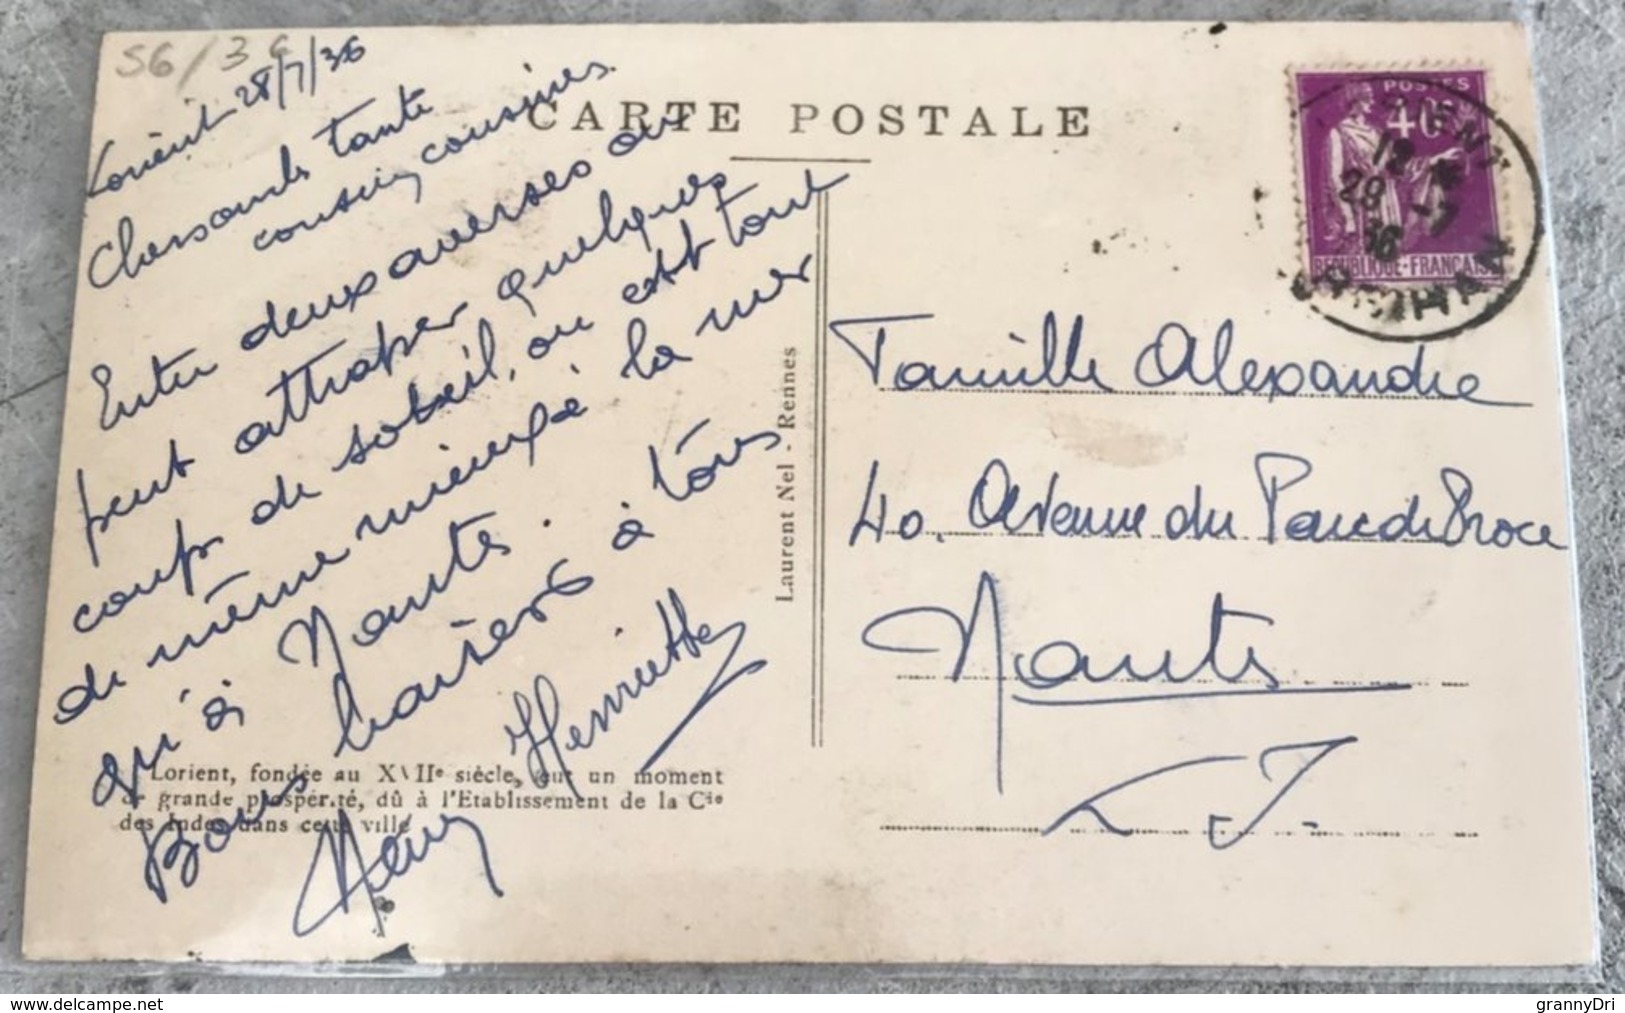 56/36
Lorient 28/7/36
CARTE POSTALE
Chers oncle tante
cousin, cousines
Entre deux averses on
peut attraper quelques
coups de soleil, on est tout
de même mieux à la mer
qu'à Nantes.
Bons baisers à tous
Henriette
Lorient, fondée au XVIIe siècle, eut un moment
de grande prospérité, dû à l'Etablissement de la Cie
des Indes dans cette ville
Laurent Nel - Rennes
POSTES
40c
REPUBLIQUE·FRANÇAISE
LORIENT
12
28 -7
36
MORBIHAN
Famille Alexandre
40. Avenue du Parc de Procé
Nantes
L. I.
www.delcampe.net
grannyDri